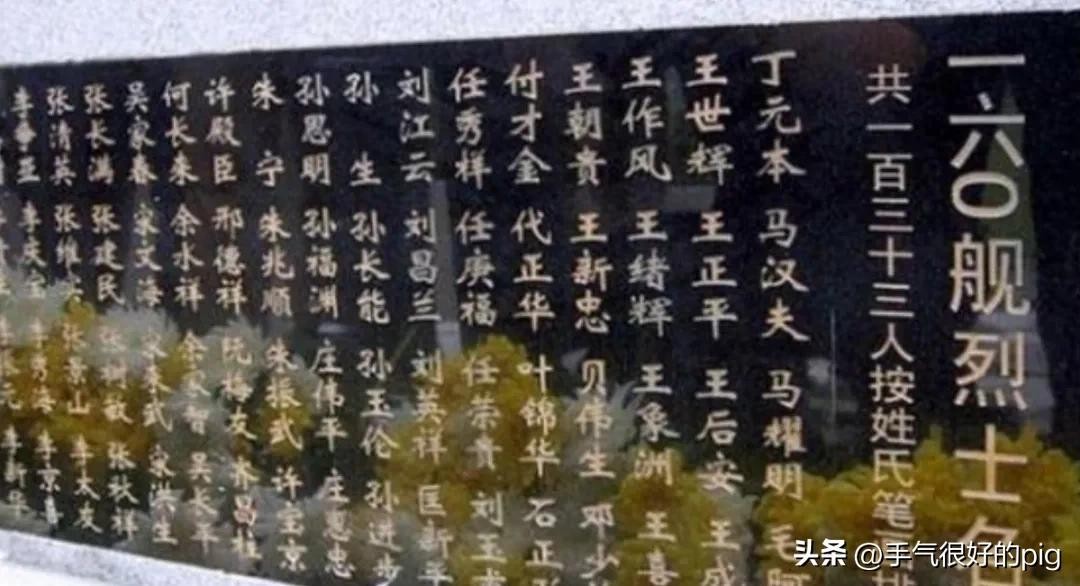 一六〇舰烈士
共一百三十三人按姓氏笔
丁元本 马汉夫 马耀明
王世辉 王正平 王后安 王成
王作风 王绪辉 王象洲 王喜
王朝贵 王新忠 贝伟生 邓少
付才金 代正华 叶锦华 石正
任秀祥 任庚福 任荣贵 刘玉
刘江云 刘昌兰 刘英祥 匡新平
孙生 孙长能 孙玉伦 孙进步
孙思明 孙福渊 庄伟平 庄惠忠
朱宁 朱兆顺 朱振武 许宝京
许殿臣 邢德祥 阮梅友 齐昌桂
何长来 余水祥 吴长平
吴家春 家文海 家洪生
张长满 张建民 张秋祥
张清英 张维 张景山 李太友
李庆宝 李秀海 李京
李新华
头条 @手气很好的pig